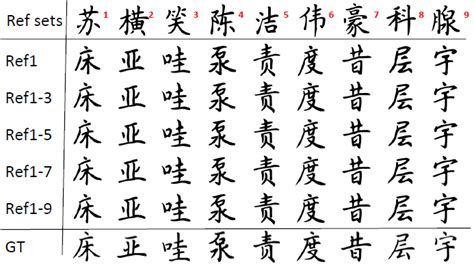 Ref sets 苏1 横2 笑3 陈4 洁5 伟6 豪7 科8 腺9
Ref1 床 亚 哇 泵 责 度 昔 层 宇
Ref1-3 床 亚 哇 泵 责 度 昔 层 宇
Ref1-5 床 亚 哇 泵 责 度 昔 层 宇
Ref1-7 床 亚 哇 泵 责 度 昔 层 宇
Ref1-9 床 亚 哇 泵 责 度 昔 层 宇
GT 床 亚 哇 泵 责 度 昔 层 宇